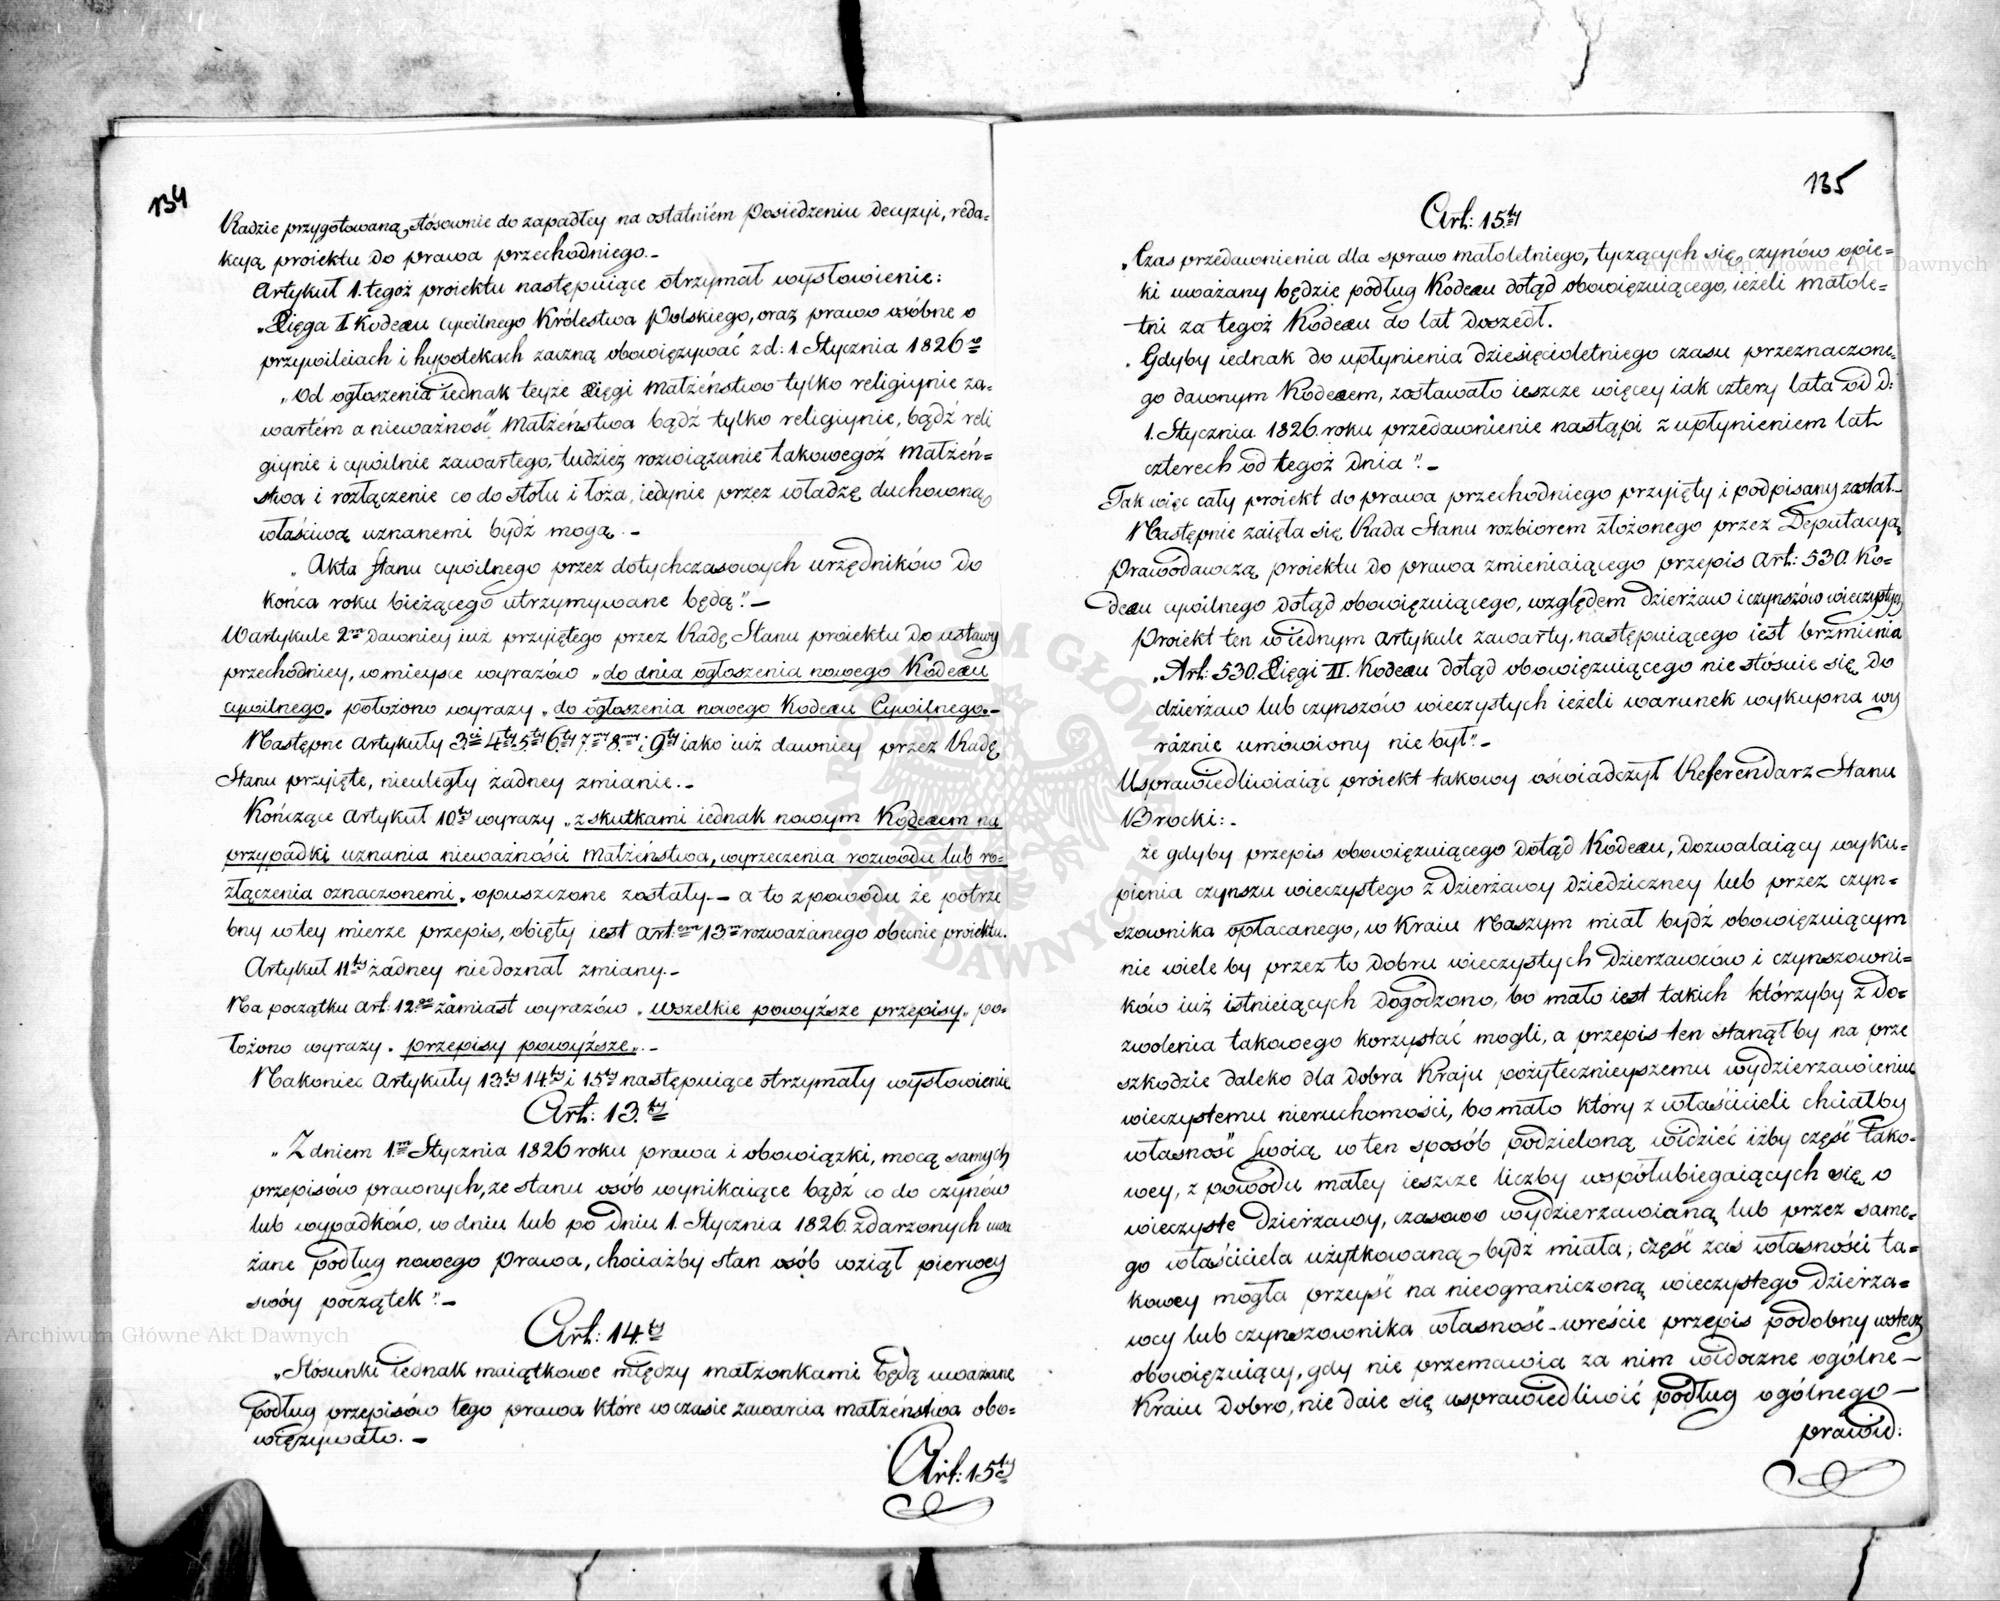 134
Radzie przygotowaną, stósownie do zapadłey na ostatniém Posiedzeniu decyzyi, reda-
kcyą proiektu do prawa przechodniego.-
Artykuł 1. tegoż proiektu następuiące otrzymał wysłowienie:
„Xięga I Kodexu cywilnego Królestwa Polskiego, oraz prawo osóbne o
przywileiach i hypotekach zaczną obowięzywać z d: 1. Stycznia 1826 r̲o̲
„Od ogłoszenia iednak teyże Xięgi Małżéństwo tylko religiynie za-
wartém a nieważność Małżéństwa bądź tylko religiynie, bądź reli
giynie i cywilnie zawartego, tudzież rozwiązanie takowegoż Małżéń=
stwa i rozłączenie co do stołu i łoża, iedynie przez władzę duchowną
właściwą uznanemi bydź mogą.-
„Akta Stanu cywilnego przez dotychczasowych urzędników do
końca roku bieżącego utrzymywane będą".-
W artykule 2m dawniey iuż przyiętego przez Radę Stanu proiektu do ustawy
przechodniey, w mieysce wyrazów „do dnia ogłoszenia nowego Kodexu
cywilnego„ położono wyrazy „do ogłoszenia nowego Kodexu Cywilnego„-
Następne Artykuły 3ci 4ty 5ty 6ty 7my 8my i 9ty iako iuż dawniey przez Radę
Stanu przyięte, nieuległy żadney zmianie.-
Kończące Artykuł 10ty wyrazy „z skutkami iednak nowym Kodexem na
przypadki uznania nieważności Małżéństwa, wyrzeczenia rozwodu lub ro=
złączenia oznaczonemi„ opuszczone zostały.- a to z powodu że potrze
bny w tey mierze przepis, obięty iest Art:em 13m rozważanego obecnie proiektu.
Artykuł 11ty żadney niedoznał zmiany.-
Na początku Art: 12go zamiast wyrazów „wszelkie powyższe przepisy„ po-
łożono wyrazy „przepisy powyższe„.-
Nakoniec Artykuły 13ty 14ty i 15ty następuiące otrzymały wysłowienie
Art: 13.ty
„Z dniem 1m Stycznia 1826 roku prawa i obowiązki, mocą samych
przepisów prawnych, ze stanu osób wynikaiące bądź co do czynów
lub wypadków, w dniu lub po Dniu 1. Stycznia 1826. zdarzonych uwa
żane podług nowego Prawa, chociażby stan osób wziął pierwey
swóy początek".-
Art: 14.ty
„Stósunki iednak maiątkowe między małżonkami będą uważane
podług przepisów tego prawa które w czasie zawarcia małżéństwa obo=
więzywało.-
Art: 15ty
135
Art: 15.ty
„Czas przedawnienia dla spraw małoletniego, tyczących się czynów opie=
ki uważany będzie podług Kodexu dotąd obowięzuiącego, ieżeli małole=
tni za tegoż Kodexu do lat doszedł.
„Gdyby iednak do upłynienia dziesięcioletniego czasu przeznaczone=
go dawnym Kodexem, zostawało ieszcze więcey iak cztery lata od d:
1. Stycznia 1826. roku przedawnienie nastąpi z upłynieniem lat
czterech od tegoż dnia".-
Tak więc cały proiekt do prawa przechodniego przyięty i podpisany został.-
Następnie zaięła się Rada Stanu rozbiorem złożonego przez Deputacyą
Prawodawczą proiektu do prawa zmieniaiącego przepis Art: 530. Ko=
dexu cywilnego dotąd obowięzuiącego, względem dzierżaw i czynszów wieczystych
Proiekt ten w iednym Artykule zawarty, następuiącego iest brzmienia
„Art: 530. Xięgi II. Kodexu dotąd obowięzuiącego nie stósuie się do
dzierżaw lub czynszów wieczystych ieżeli warunek wykupna wy
ráznie umówiony nie był".-
Usprawiedliwiaiąc proiekt takowy oświadczył Referendarz Stanu
Brocki:-
że gdyby przepis obowięzuiącego dotąd Kodexu, dozwalaiący wyku=
pienia czynszu wieczystego z dzierżawy dziedziczney lub przez czyn=
szownika opłacanego, w Kraiu Naszym miał bydź obowięzuiącym
nie wiele by przez to dobru wieczystych dzierżawców i czynszowni=
ków iuż istnieiących dogodzono, bo mało iest takich którzyby z do=
zwolenia takowego korzystać mogli, a przepis ten stanąłby na prze
szkodzie daleko dla dobra Kraju pożytecznieyszemu wydzierżawieniu
wieczystemu nieruchomości, bo mało który z właścicieli chciałby
własność swoią w ten sposób podzieloną widzieć iżby część tako=
wey, z powodu małey ieszcze liczby współubiegaiących się o
wieczyste dzierżawy, czasowo wydzierżawianą lub przez same=
go właściciela użytkowaną bydź miała; część zaś własności ta=
kowey mogła przeyść na nieograniczoną wieczystego dzierża=
wcy lub czynszownika własność - wreście przepis podobny wstecz
obowięzuiący, gdy nie przemawia za nim widoczne ogólne -
Kraiu dobro, nie daie się usprawiedliwić podług ogólnego -
prawid: